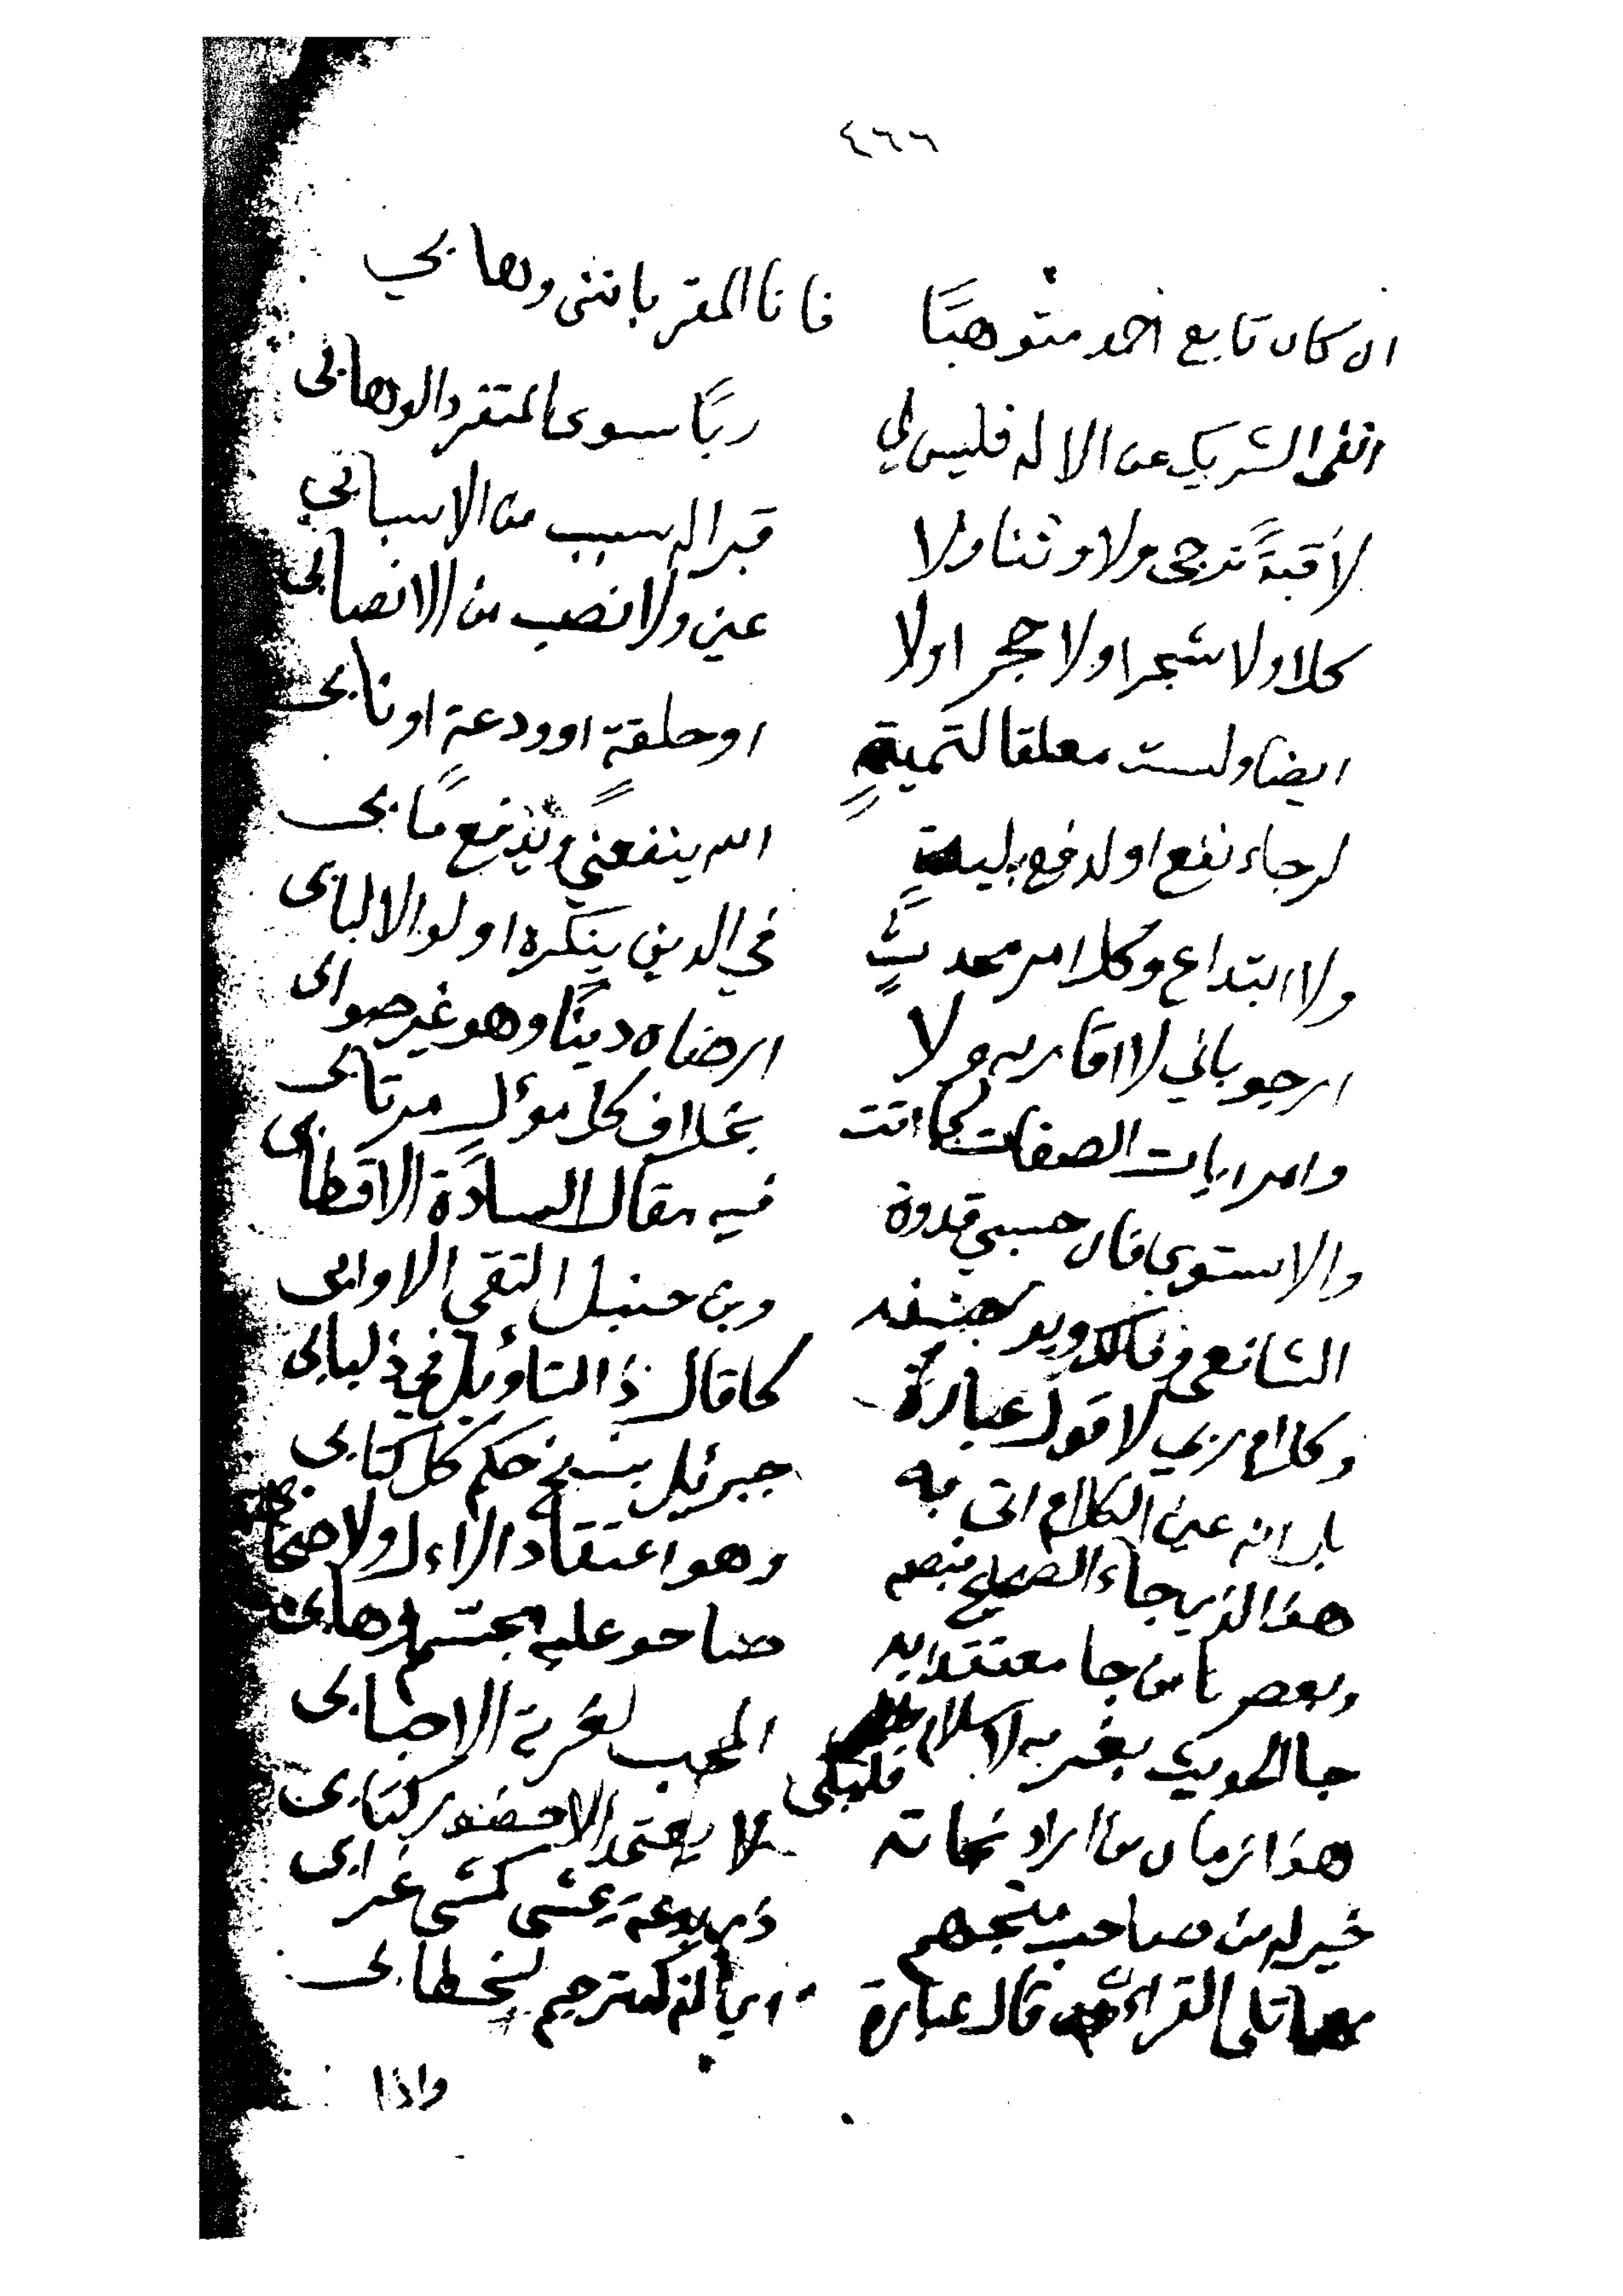 ٤٦٦
ان كان تابع احمد متوهبًا فانا المقر بانني وهابي
انفي الشريك عن الاله فليس لي ربًا سوى المتفرد الوهابي
لا قبةً ترجى ولا وثنا ولا قبرا له سبب من الاسبابي
كلا ولا شجرا ولا حجرا ولا عين ولا نصب من الانصابي
ايضا ولست معلقا لتميمةٍ او حلقةٍ او ودعةٍ او نابي
لرجاء نفع او لدفع بليةٍ الله ينفعني ويدفع مابي
ولا ابتداع وكل امر محدثٍ في الدين ينكره اولو الالبابي
ارجو باني لا اقاربه ولا ارضاه دينًا وهو غير صوابي
وامر ايات الصفات كما اتت بخلاف كل مؤل مرتابي
والاستوى فان حسبي قدوة فيه مقال السادة الاقطابي
الشافعي ومالك وبو حنيفه وبن حنبل التقي الاوابي
وكلام ربي لا اقول عبارة كما قال ذا التاويل في ذلبابي
بل انه عين الكلام اتى به جبرئيل ينسخ حكم كل كتابي
هذا الذي جاء الصحيح بنصه وهو اعتقاد الاءل ولاصحابي
وبعصرنا من جا معتقدا به صاحو عليه مجسم وهابي
جا الحديث بغربه لاسلام فليبكي المحب لغربة الاحبابي
هذا زمان من اراد نجاته لا يعتمد الا حضور كتابي
خير له من صاحب متجهم ذي بدعة يمشي كمشي غرابي
تلى القراءن قال عبارة كمترجم لخطابي
واذا